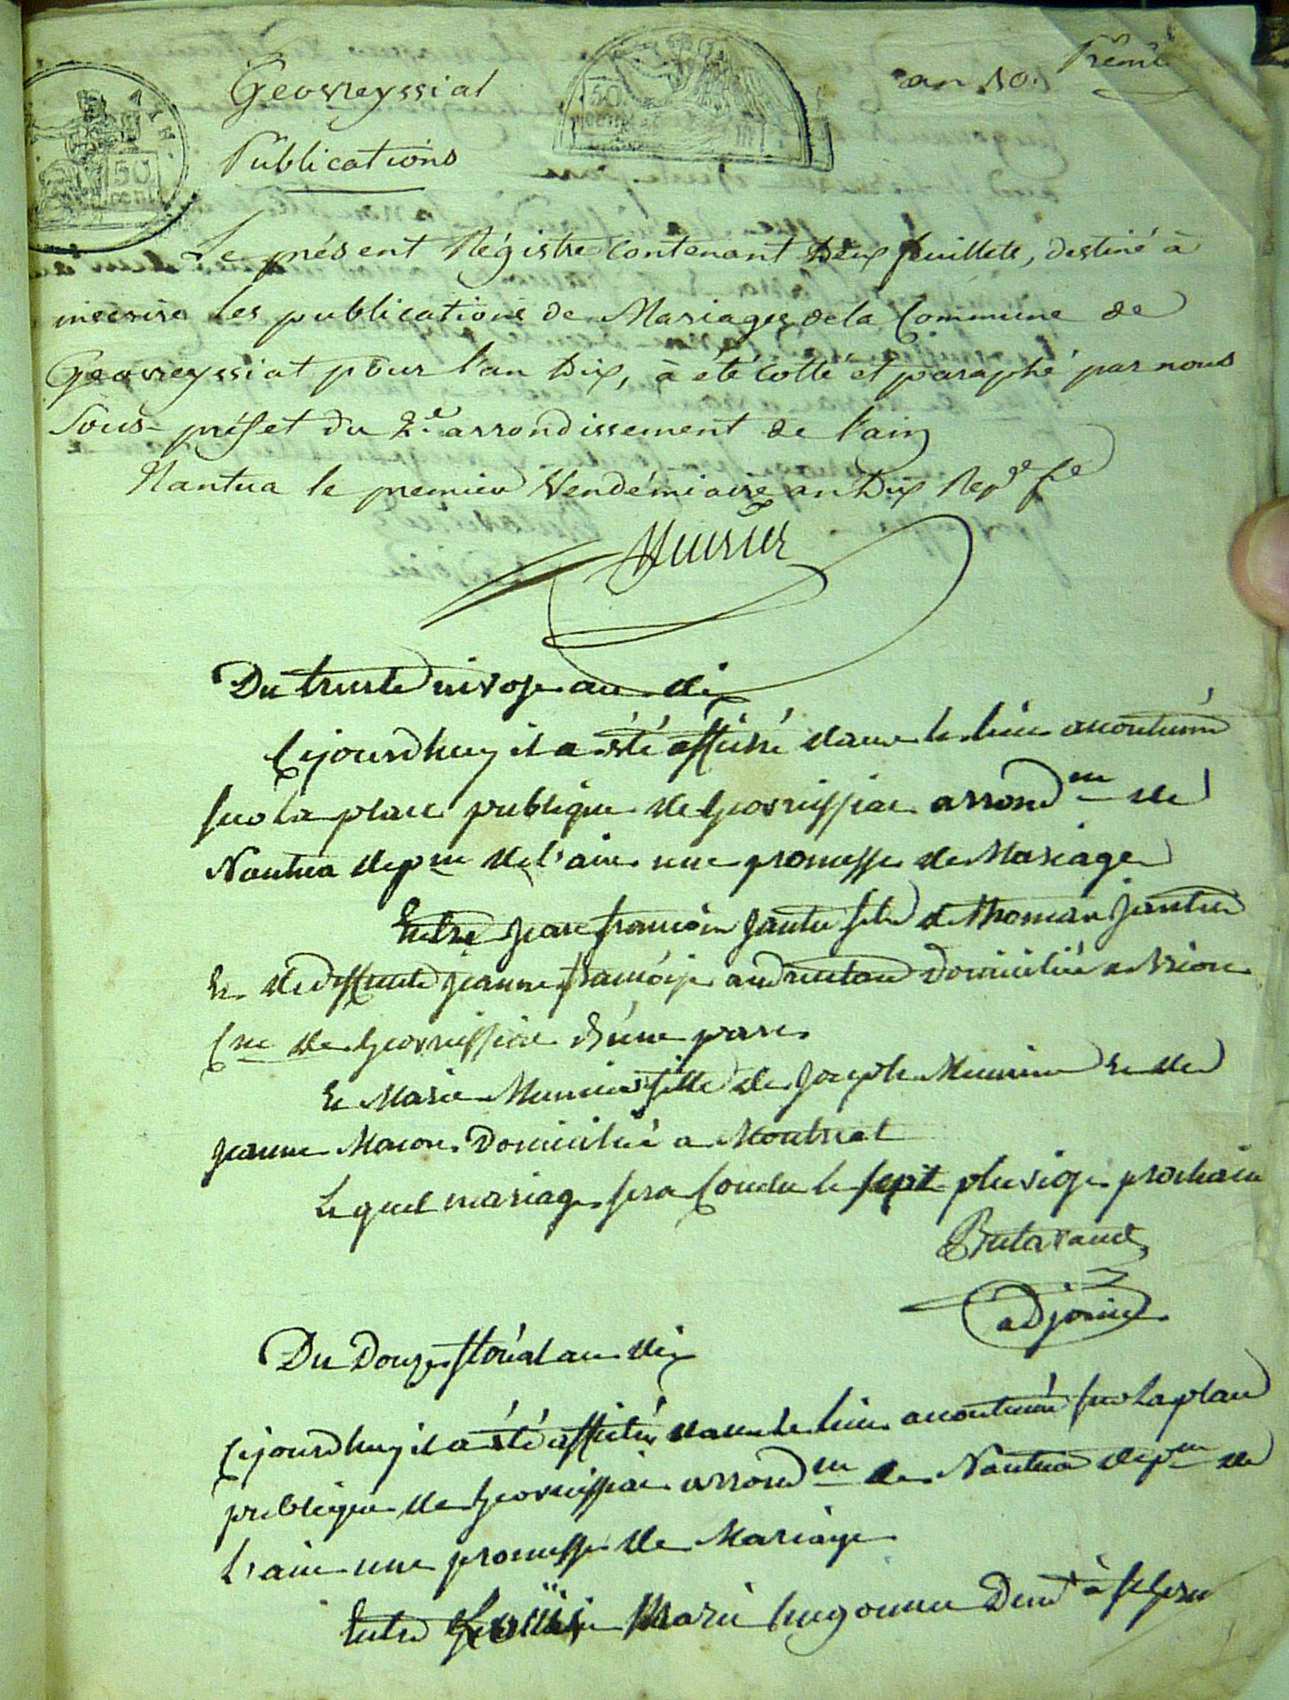 an 10. Premr
Geovreyssiat
Publications
AIN.
50
CENT
50
Le présent Régistre Contenant Deux feuillets, destiné à
inscrire les publications de Mariages de la Commune de
Geovreyssiat pour l'an Dix, à été Cotté et paraphé par nous
Sous-préfet du 2e arrondissement de l'ain
Nantua le premier Vendémiaire an Dix Repe fe
Du trente nivose an dix
Cejourdhuy il a été affiché dans le lieu accoutumé
sur la place publique de Geovrissiac arrondme de
Nantua depme de l'ain une promesse de Mariage
Entre Jean françois Jantet fils de Thomas Jantet
Et de deffunte Jeanne françoise domicilié a
Cne de Geovrissiac D'une part
Et Marie Meunier fille de Joseph Meunier Et de
Jeanne Macon Domicilié a Montreal
Lequel mariage sera Conclu le sept pluviose prochain
Butavand
adjoint
Du Douze floréal an dix
Cejourdhuy il a été affiché dans le lieu accoutumé sur la place
publique de Geovrissiac arrondme de Nantua depme de
L'ain une promesse de Mariage
Entre Marie hugonnet Demt à